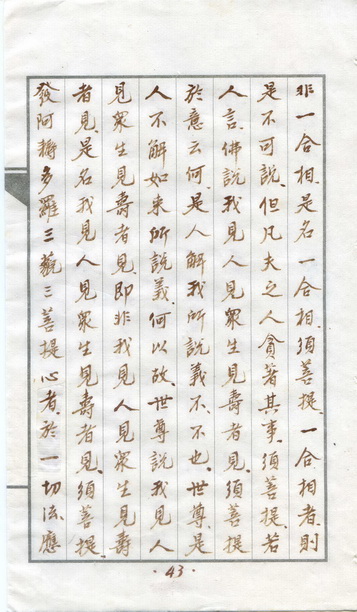 非一合相、是名一合相、須菩提、一合相者、則
是不可說、但凡夫之人、貪著其事、須菩提、若
人言、佛說我見人見衆生見壽者見、須菩提
於意云何、是人解我所說義不、不也、世尊、是
人不解如来所說義、何以故、世尊說我見人
見衆生見壽者見、即非我見人見衆生見壽
者見、是名我見人見衆生見壽者見、須菩提、
發阿耨多羅三藐三菩提心者、於一切法、應
·43·